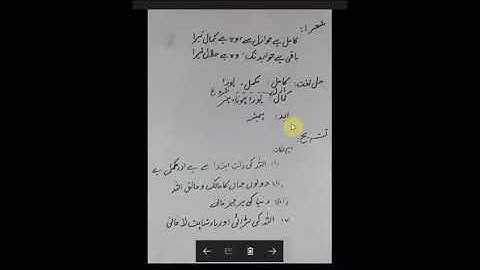 شعر ۱:
کامل ہے جو ازل سے وہ ہے کمال تیرا
باقی ہے جو ابد تک وہ ہے جلال تیرا
حل لغت: کامل: مکمل، پورا
ازل: شروع
کمال: پورا ہونا، ہنر
ابد: ہمیشہ
تشریح:
اہم نکات:
(i) اللہ کی ذات ابتدا سے ہے اور مکمل ہے
(ii) دونوں جہاں کا مالک و خالق اللہ
(iii) دنیا کی ہر چیز فانی
(iv) اللہ کی بڑائی اور بادشاہت لافانی